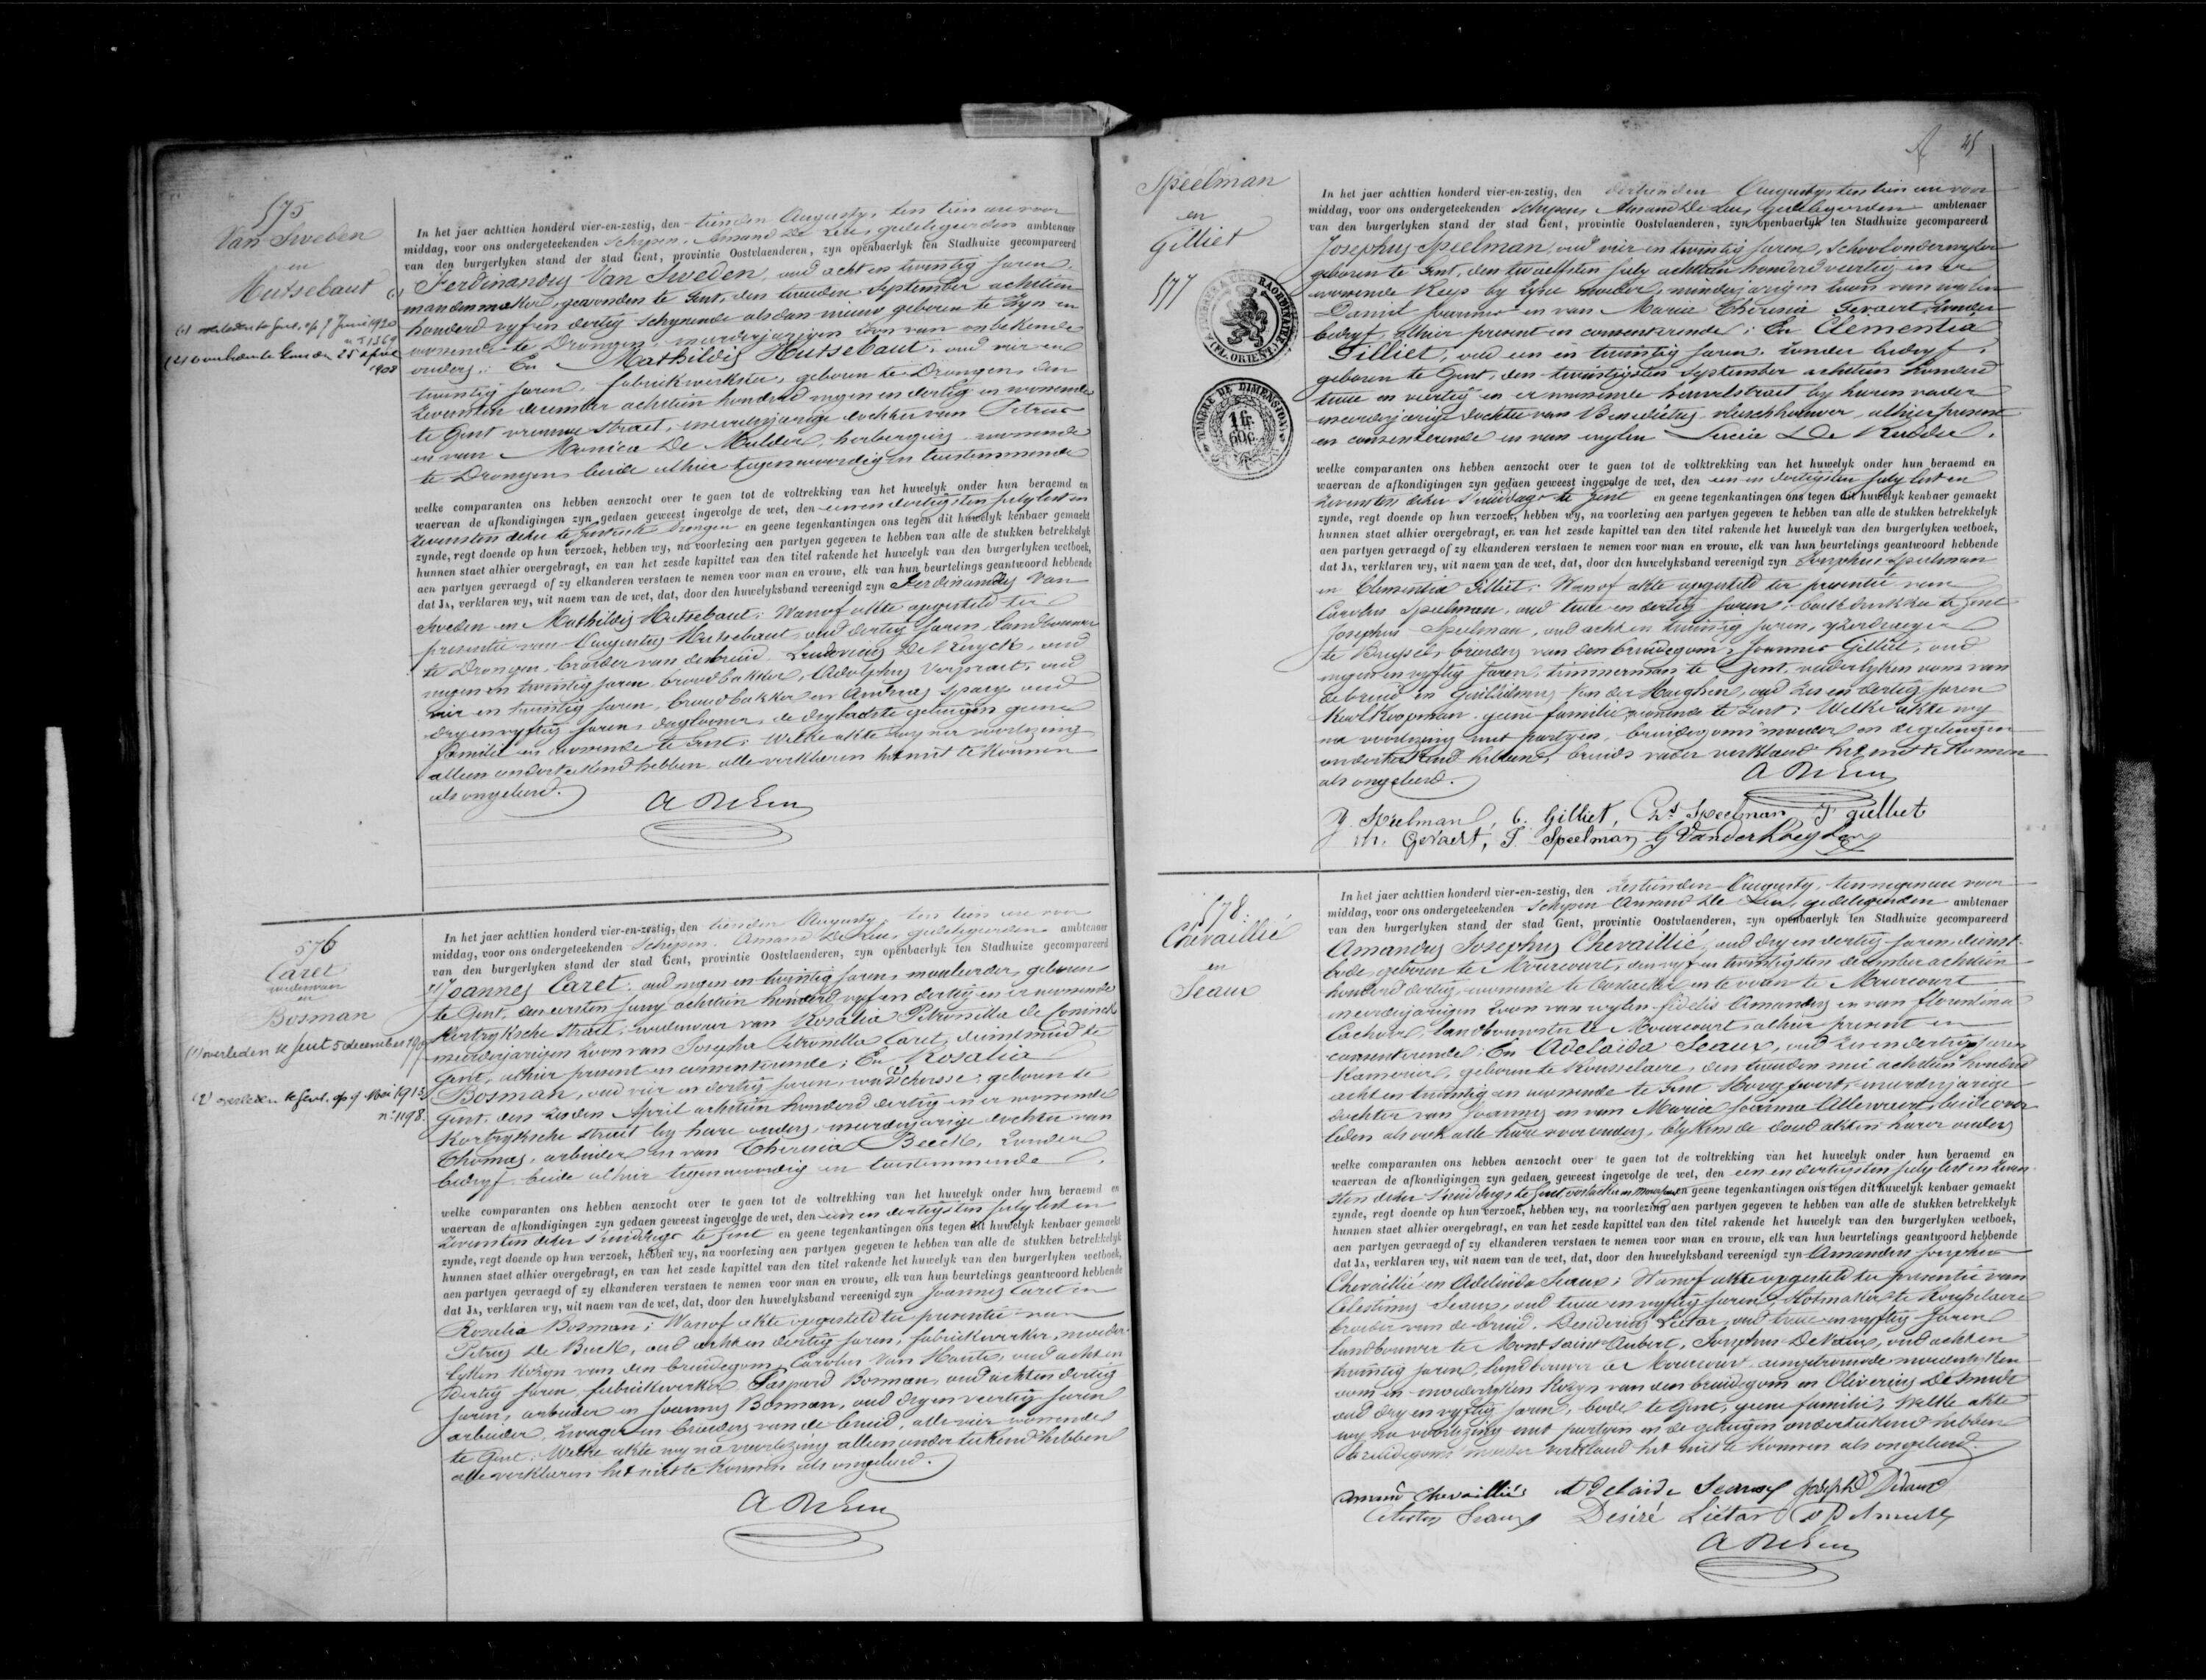 575
Van Sweden
en
Hutsebaut
(1) overleden te Gent, op 9 Juni 1920
n. 1569
(2) overleden te Gent den 25 april
1908
In het jaer achttien honderd vier-en-zestig, den tienden Augusty, ten tien ure voor
middag, voor ons ondergeteekenden Schepen, Amand De Leu, gedelegeerden ambtenaer
van den burgerlyken stand der stad Gent, provintie Oostvlaenderen, zyn openbaerlyk ten Stadhuize gecompareerd
(1) Ferdinandus Van Sweden, oud acht en twintig jaren,
mandenmaker, gevonden te Gent, den tweeden September achttien
honderd vyf en dertig schynende alsdan nieuw geboren te zyn en
wonende te Drongen, meerderjarigen zoon van onbekende
ouders; En Mathildis Hutsebaut, oud vier en
twintig jaren, fabriekwerkster, geboren te Drongen, den
zevensten december achttien honderd negen en dertig en wonende
te Gent vrouwe straet, meerderjarige dochter van Petrus
en van Monica De Mulder, herbergiers wonende
te Drongen beide alhier tegenwoordig en toestemmende
welke comparanten ons hebben aenzocht over te gaen tot de voltrekking van het huwelyk onder hun beraemd en
waervan de afkondigingen zyn gedaen geweest ingevolge de wet, den een en dertigsten july lest en
zevensten deher te Gent en te Drongen en geene tegenkantingen ons tegen dit huwelyk kenbaer gemaekt
zynde, regt doende op hun verzoek, hebben wy, na voorlezing aen partyen gegeven te hebben van alle de stukken betrekkelyk
hunnen staet alhier overgebragt, en van het zesde kapittel van den titel rakende het huwelyk van den burgerlyken wetboek,
aen partyen gevraegd of zy elkanderen verstaen te nemen voor man en vrouw, elk van hun beurtelings geantwoord hebbende
dat JA, verklaren wy, uit naem van de wet, dat, door den huwelyksband vereenigd zyn Ferdinandus Van
Sweden en Mathildis Hutsebaut; Waarof akte opgesteld ter
presentie van Augustus Hutsebaut, oud dertig jaren, landbouwer
te Drongen, broeder van de bruid, Ludovicus De Kuyck, oud
negen en twintig jaren, broodbakker, Adolphus Verpraet, oud
vier en twintig jaren, broodbakker en Andreas Spaey oud
dry en vyftig jaren, daglooner, de dry laetste getuigen geene
familie en wonende te Gent; Welke akte wy na voorlezing
alleen onderteekend hebben, alle verklaren het niet te konnen
als ongeleerd.
A De Leu
576
Caret
weduwaer
en
Bosman
(1) overleden te Gent 5 december
(2) overleden te Gent, op 9 Mei 1913
n. 1198.
In het jaer achttien honderd vier-en-zestig, den tienden Augusty, ten tien ure voor
middag, voor ons ondergeteekenden Schepen, Amand De Leu, gedelegeerden ambtenaer
van den burgerlyken stand der stad Gent, provintie Oostvlaenderen, zyn openbaerlyk ten Stadhuize gecompareerd
(1) Joannes Caret, oud negen en twintig jaren, mouleerder, geboren
te Gent, den eersten juny achttien honderd vyf en dertig en er wonende
Kortryksche straet, weduwaer van Rosalia Petronilla de Coninck
meerderjarigen zoon van Josepha Petronella Caret, dienstmeid te
Gent, alhier present en consenterende; En Rosalia
Bosman, (2) oud vier en dertig jaren, geboren te
Gent, den zesden April achttien honderd dertig en er wonende
Kortryksche straet by hare ouders, meerderjarige dochter van
Thomas, arbeider en van Theresia Beeck, zonder
bedryf beide alhier tegenwoordig en toestemmende
welke comparanten ons hebben aenzocht over te gaen tot de voltrekking van het huwelyk onder hun beraemd en
waervan de afkondigingen zyn gedaen geweest ingevolge de wet, den een en dertigsten july lest en
zevensten deher s'zondags te Gent en geene tegenkantingen ons tegen dit huwelyk kenbaer gemaekt
zynde, regt doende op hun verzoek, hebben wy, na voorlezing aen partyen gegeven te hebben van alle de stukken betrekkelyk
hunnen staet alhier overgebragt, en van het zesde kapittel van den titel rakende het huwelyk van den burgerlyken wetboek,
aen partyen gevraegd of zy elkanderen verstaen te nemen voor man en vrouw, elk van hun beurtelings geantwoord hebbende
dat JA, verklaren wy, uit naem van de wet, dat, door den huwelyksband vereenigd zyn Joannes Caret en
Rosalia Bosman; Waarof akte opgesteld ter presentie van
Petrus De Buck, oud acht en dertig jaren, fabriekwerker, moeder-
lyken kozyn van den bruidegom, Carolus Van Haute, oud acht en
dertig jaren, fabriekwerker, Gaspard Bosman, oud acht en dertig
jaren, arbeider en Joannes Bosman, oud dry en veertig jaren
arbeider, zwager en broeders van de bruid, alle vier wonende
te Gent; Welke akte wy na voorlezing alleen onderteekend hebben
alle verklaren het niet te konnen als ongeleerd.
A De Leu
45
Speelman
en
Gilliet
577
TIMBRE DE DIMENSION
1 fr. 60c
In het jaer achttien honderd vier-en-zestig, den dertienden Augusty ten tien ure voor
middag, voor ons ondergeteekenden Schepen, Amand De Leu, gedelegeerden ambtenaer
van den burgerlyken stand der stad Gent, provintie Oostvlaenderen, zyn openbaerlyk ten Stadhuize gecompareerd
Josephus Speelman, oud vier en twintig jaren, schoolonderwyzer
geboren te Gent, den twaelfsten july achttien honderd veertig en er
wonende by zyne moeder, minderjarigen zoon van wylen
Daniel Joannes en van Maria Theresia Gevaert, zonder
bedryf, alhier present en consenterende; En Clementia
Gilliet, oud een en twintig jaren, zonder bedryf,
geboren te Gent, den twintigsten September achttien honderd
twee en veertig en er wonende heuvelstraet by haren vader
meerderjarige dochter van Benedictus, vleeschhouwer, alhier present
en consenterende en van wylen Lucia De Rudder.
welke comparanten ons hebben aenzocht over te gaen tot de volktrekking van het huwelyk onder hun beraemd en
waervan de afkondigingen zyn gedaen geweest ingevolge de wet, den een en dertigsten july lest en
zevensten deher s'zondags te Gent en geene tegenkantingen ons tegen dit huwelyk kenbaer gemaekt
zynde, regt doende op hun verzoek, hebben wy, na voorlezing aen partyen gegeven te hebben van alle de stukken betrekkelyk
hunnen staet alhier overgebragt, en van het zesde kapittel van den titel rakende het huwelyk van den burgerlyken wetboek,
aen partyen gevraegd of zy elkanderen verstaen te nemen voor man en vrouw, elk van hun beurtelings geantwoord hebbende
dat JA, verklaren wy, uit naem van de wet, dat, door den huwelyksband vereenigd zyn Josephus Speelman
en Clementia Gilliet; Waarof akte opgesteld ter presentie van
Carolus Speelman, oud twee en dertig jaren, boekdrukker te Gent
Josephus Speelman, oud acht en twintig jaren,
te Brussel, broeders van den bruidegom, Joannes Gilliet, oud
negen en vyftig jaren, timmerman te Gent, vaderlyken oom van
de bruid en Guilielmus Van der Haeghen, oud zes en dertig jaren
koopman, geene familie wonende te Gent; Welke akte wy
na voorlezing met partyen, bruidegoms moeder en de getuigen
onderteekend hebben, bruids vader verklaerd het niet te konnen
als ongeleerd.
A De Leu
J. Speelman, C. Gilliet, Ch. Speelman J. Gilliet
M. Gevaert, J. Speelman G Vanderhaeghen
578.
Chevaillié
en
Seaux
In het jaer achttien honderd vier-en-zestig, den zestienden Augusty, ten negen ure voor
middag, voor ons ondergeteekenden Schepen Amand De Leu, gedelegeerden ambtenaer
van den burgerlyken stand der stad Gent, provintie Oostvlaenderen, zyn openbaerlyk ten Stadhuize gecompareerd
Amandus Josephus Chevaillié, oud dry en dertig jaren, dienst-
bode, geboren te Mourcourt, den vyf en twintigsten december achttien
honderd dertig, wonende te Oostacker en te voren te Mourcourt
meerderjarigen zoon van wylen fidelis Amandus en van florentina
Cachoir, landbouwster te Mourcourt alhier present en
consenterende; En Adelaïda Seaux, oud zes en dertig jaren
Kamenier, geboren te Rousselaere, den tweeden mei achttien honderd
acht en twintig en wonende te Gent Hoogpoort, meerderjarige
dochter van Joannes en van Maria Joanna Allewaert, beide over-
leden als ook alle hare voorouders, blykens de dood akten harer ouders
welke comparanten ons hebben aenzocht over te gaen tot de voltrekking van het huwelyk onder hun beraemd en
waervan de afkondigingen zyn gedaen geweest ingevolge de wet, den een en dertigsten july lest en zeven-
sten deher s'zondags te Gent, oostacker en Mourcourt en geene tegenkantingen ons tegen dit huwelyk kenbaer gemaekt
zynde, regt doende op hun verzoek, hebben wy, na voorlezing aen partyen gegeven te hebben van alle de stukken betrekkelyk
hunnen staet alhier overgebragt, en van het zesde kapittel van den titel rakende het huwelyk van den burgerlyken wetboek,
aen partyen gevraegd of zy elkanderen verstaen te nemen voor man en vrouw, elk van hun beurtelings geantwoord hebbende
dat JA, verklaren wy, uit naem van de wet, dat, door den huwelyksband vereenigd zyn Amandus Josephus
Chevaillié en Adelaïda Seaux; Waarof akte opgesteld ter presentie van
Celestinus Seaux, oud twee en vyftig jaren, slotmaker te Rousselaere
broeder van de bruid, Desiderius Lietar, oud twee en vyftig jaren
landbouwer te Mont Saint Aubert, Josephus, oud acht en
twintig jaren, landbouwer te Mourcourt, aengetrouwde moederlyken
oom en moederlyken kozyn van den bruidegom en Oliverius De Smedt
oud dry en vyftig jaren, bode te Gent, geene familie; Welke akte
wy na voorlezing met partyen en de getuigen onderteekend hebben
bruidegoms moeder verklaerd het niet te konnen als ongeleerd.
Amand Chevaillié Adelaide Seaux Joseph
Celestin Seaux Desiré Liétar
A De Leu